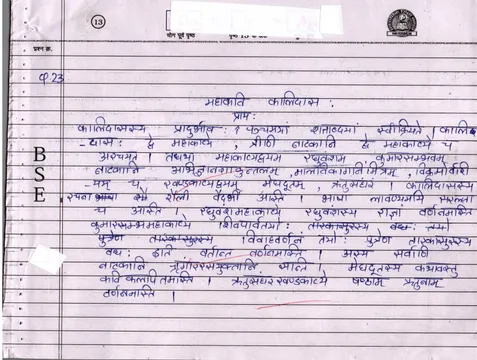 13
प्रश्न क्र.
प्र. 23
महाकवि कालिदास :
प्राय:
कालिदासस्य प्रादुर्भाव: पञ्चमया शताब्दयां स्वीक्रियते । कालि
B
S
E
-दास: द्वे महाकाव्ये, त्रीणि नाटकानि द्वे महाकाव्ये च
अरचयत । तद्यथा महाकाव्यद्वयम रघुवंशम् कुमारसम्भवम्
नाटकानि अभिज्ञानशाकुन्तलम्, मालविकाग्निमित्रम्, विक्रमोर्वशी
-यम् च खण्डकाव्यद्वयम मेघदूतम्, ऋतुसंहार । कालिदासस्य
शैली वैदर्भी अस्ति । भाषा लावण्यमयि सरला
च अस्ति । रघुवंशमहाकाव्ये रघुवंशस्य राज्ञा वर्णनमस्ति
कुमारसम्भमहाकाव्ये शिवपार्वतयो: तारकासुरस्य वध: तयो
पुत्रेण तारकासुरस्य विवाहवर्णन तयो: पुत्रेण तारकासुरस्य
वध: इति वर्तान्त वर्णनमस्ति । अस्य सर्वाणि
नाटकानि श्रृंगाररसयुक्तानि सन्ति । मेघदूतस्य कथावस्तु
कवि कल्पितमस्ति । ऋतुसंहार खण्डकाव्ये षण्णाम् ऋतुनाम्
वर्णनमस्ति ।